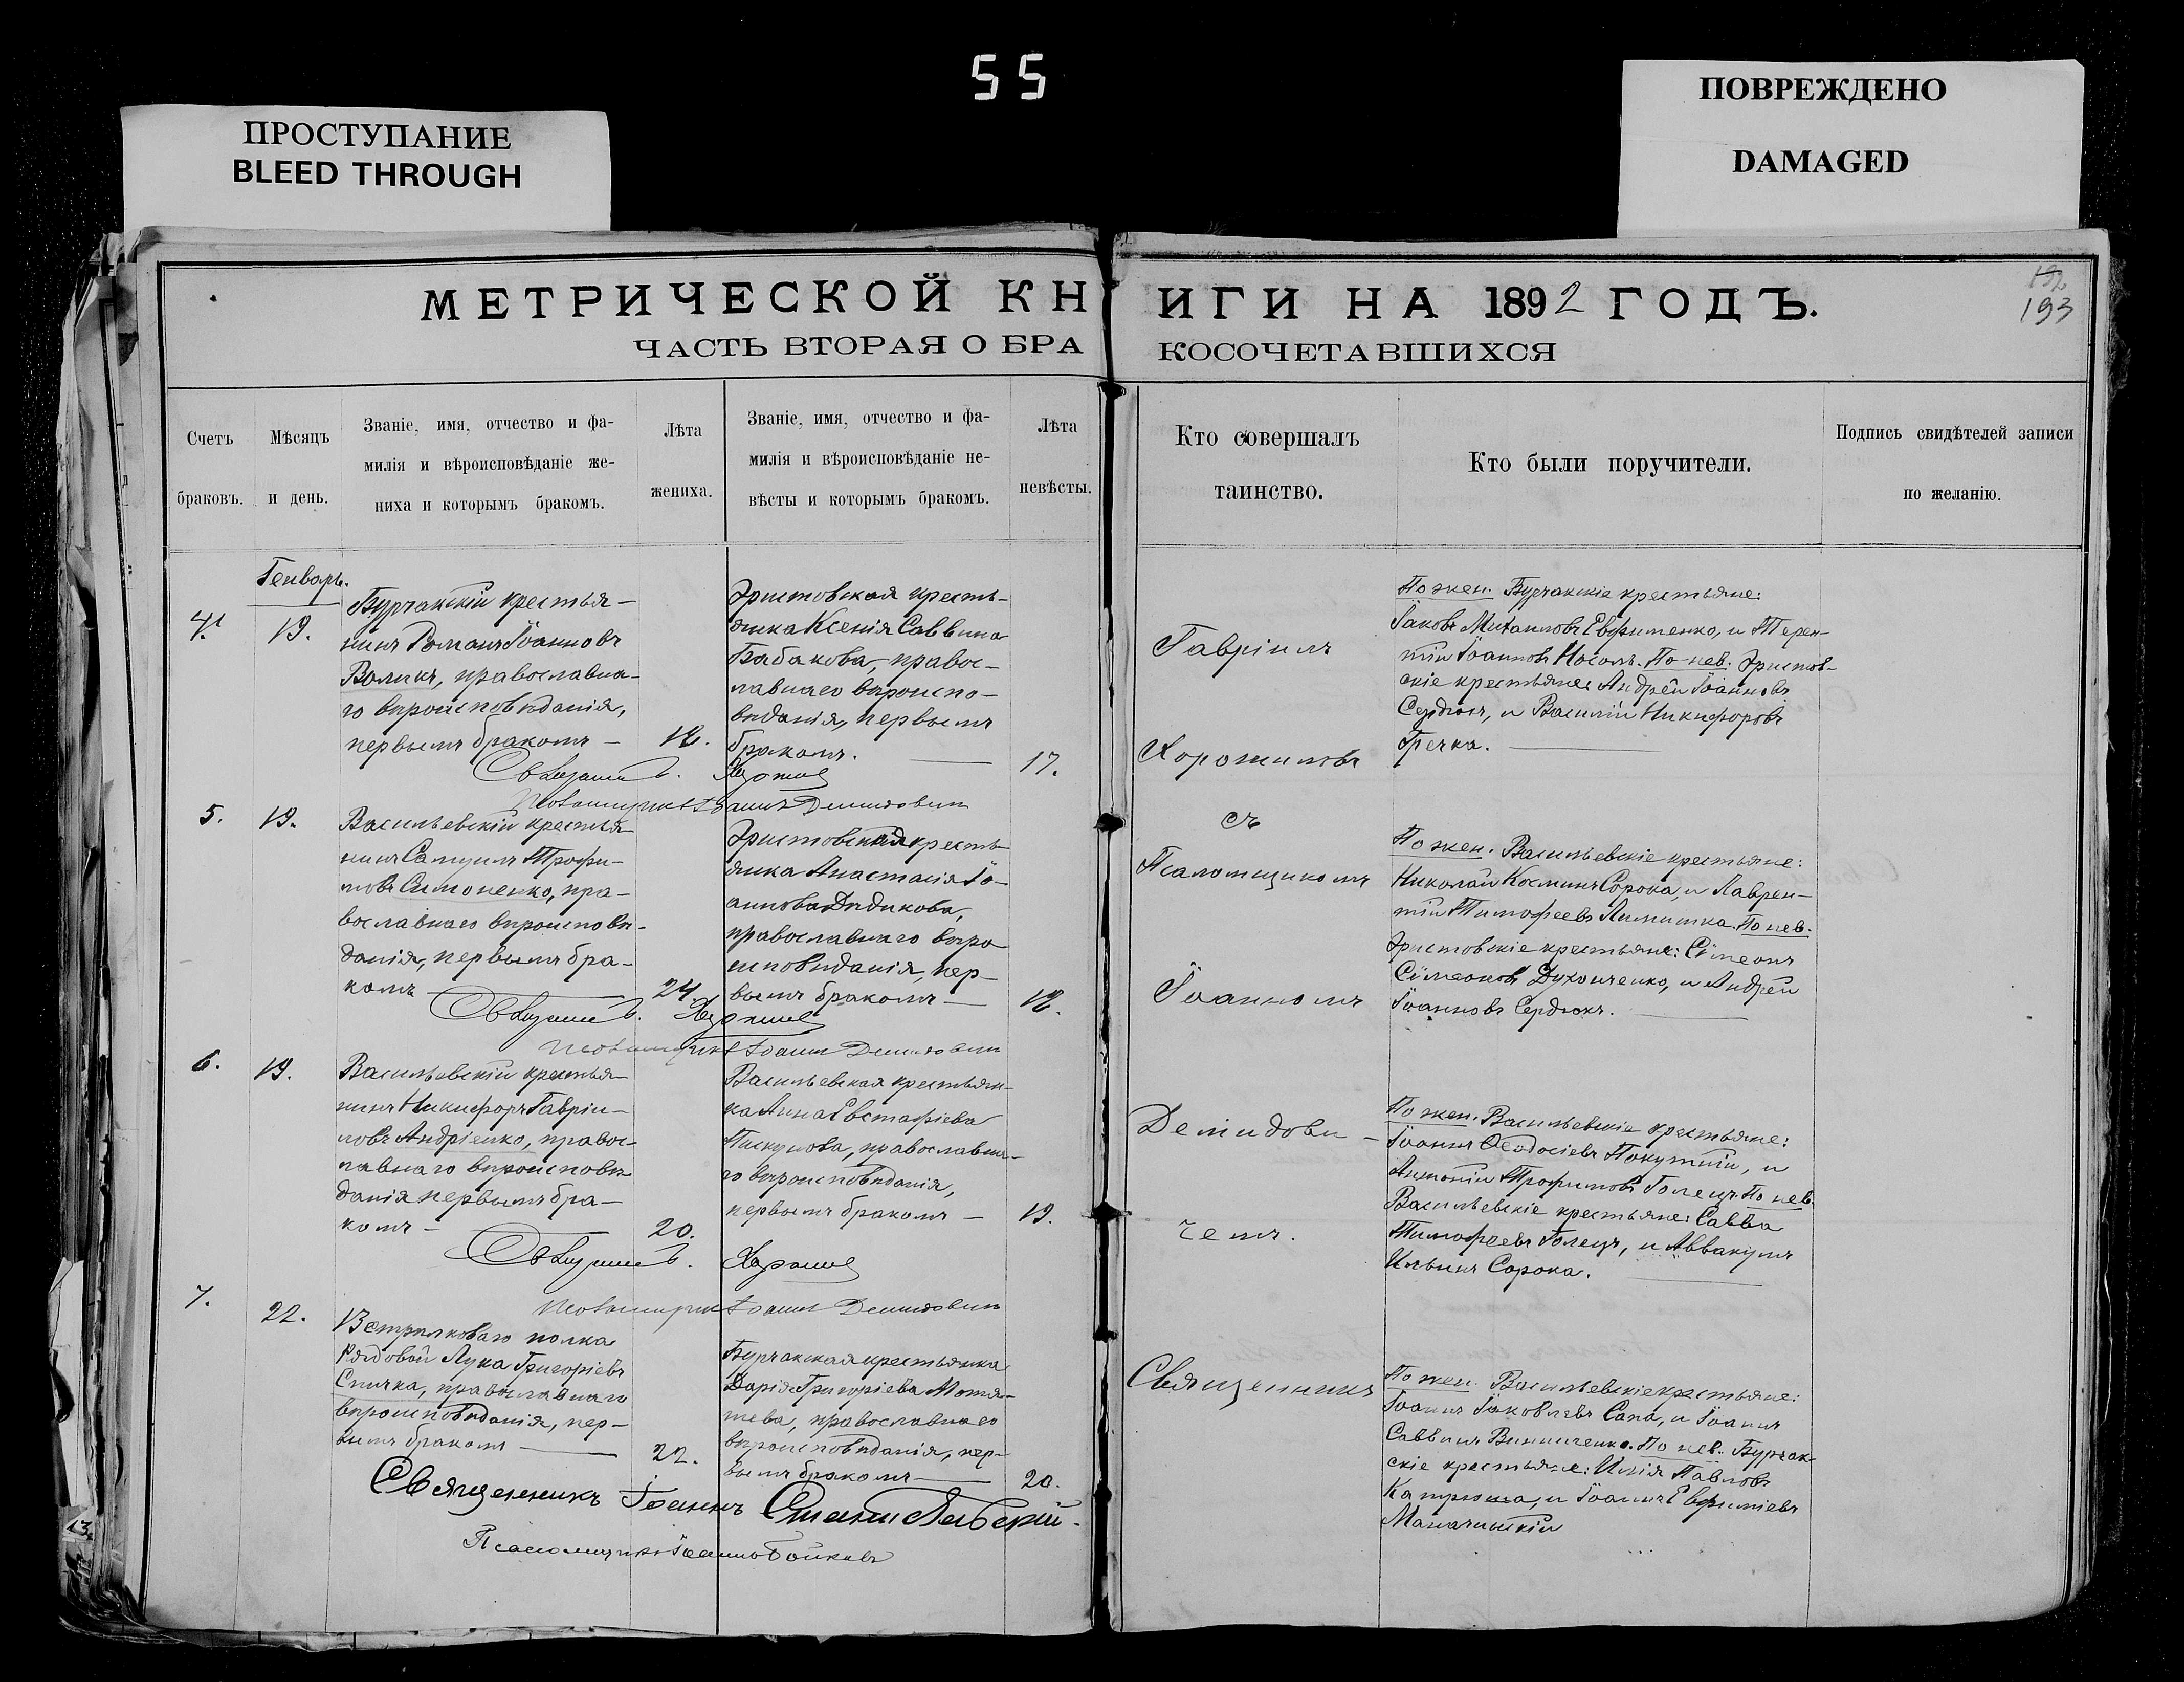 55
ПРОСТУПАНИЕ
BLEED THROUGH
ПОВРЕЖДЕНО
DAMAGED
МЕТРИЧЕСКОЙ КНИГИ НА 1892 ГОДЪ.
192
193
ЧАСТЬ ВТОРАЯ О БРАКОСОЧЕТАВШИХСЯ
Счетъ
браковъ.
Мѣсяцъ
и день.
Званіе, имя, отчество и фа-
милія и вѣроисповѣданіе же-
ниха и которымъ бракомъ.
Лѣта
жениха.
Званіе, имя, отчество и фа-
милія и вѣроисповѣданіе не-
вѣсты и которымъ бракомъ.
Лѣта
невѣсты.
Кто совершалъ
таинство.
Кто были поручители.
Подпись свидѣтелей записи
по желанію.
Генварь.
4.
19.
Бурчакскій крестья-
нинъ Романъ Іоанновъ
Воликъ, православна-
го вѣроисповѣданія,
первымъ бракомъ —
18.
Эристовская кресть-
янка Ксенія Саввина
Бабакова, правос-
лавнаго вѣроиспо-
вѣданія, первымъ
бракомъ. —
17.
Гавріилъ
Хорошиловъ
По жен. Бурчакскіе крестьяне:
Іаковъ Михаиловъ Евфименко, и Терен-
тій Іоанновъ Носоль. По нев. Эристов-
скіе крестьяне: Андрей Іоанновъ
Сердюкъ, и Василій Никифоровъ
Гречка. —
5.
19.
Васильевскій крестья-
нинъ Самуилъ Трофи-
мовъ Симоненко, пра-
вославнаго вѣроисповѣ-
данія, первымъ бра-
комъ —
24.
Эристовская кресть-
янка Анастасія Іо-
аннова Дидикова,
православнаго вѣро
исповѣданія, пер-
вымъ бракомъ —
18.
съ
Псаломщикомъ
Іоанномъ
По жен. Васильевскіе крестьяне:
Николай Косминъ Сорока, и Лаврен-
тій Тимофеевъ Лимишка. По нев.
Эристовскіе крестьяне: Сѵмеонъ
Сѵмеоновъ Духонченко, и Андрей
Іоанновъ Сердюкъ. —
6.
19.
Васильевскій крестья-
нинъ Никифоръ Гавріи-
ловъ Андріенко, правос-
лавнаго вѣроисповѣ-
данія первымъ бра-
комъ —
20.
Васильевская крестьян-
ка Анна Евстафіева
Пискунова, православна-
го вѣроисповѣданія,
первымъ бракомъ —
19.
Демидови-
чемъ.
По жен. Васильевскіе крестьяне:
Іоаннъ Ѳеодосіевъ Покутній, и
Антоній Трофимовъ Голецъ По нев.
Васильевскіе крестьяне: Савва
Тимофеевъ Голецъ, и Аввакумъ
Ильинъ Сорока. —
7.
22.
Встрѣлковаго полка
рядовой Лука Григоріевъ
Спичка, православнаго
вѣроисповѣданія, пер-
вымъ бракомъ —
22.
Бурчакская крестьянка
Дарія Григоріева
православнаго
вѣроисповѣданія, пер-
вымъ бракомъ —
20.
Священникъ
По жен. Васильевскіе крестьяне:
Іоаннъ Іаковлевъ Сапа, и Іоаннъ
Саввинъ Винниченко. По нев. Бурчак-
скіе крестьяне: Илія Павловъ
и Іоаннъ Евфиміевъ
Священникъ Іоаннъ Станиславскій.
Псаломщикъ Іоаннъ Бойковъ